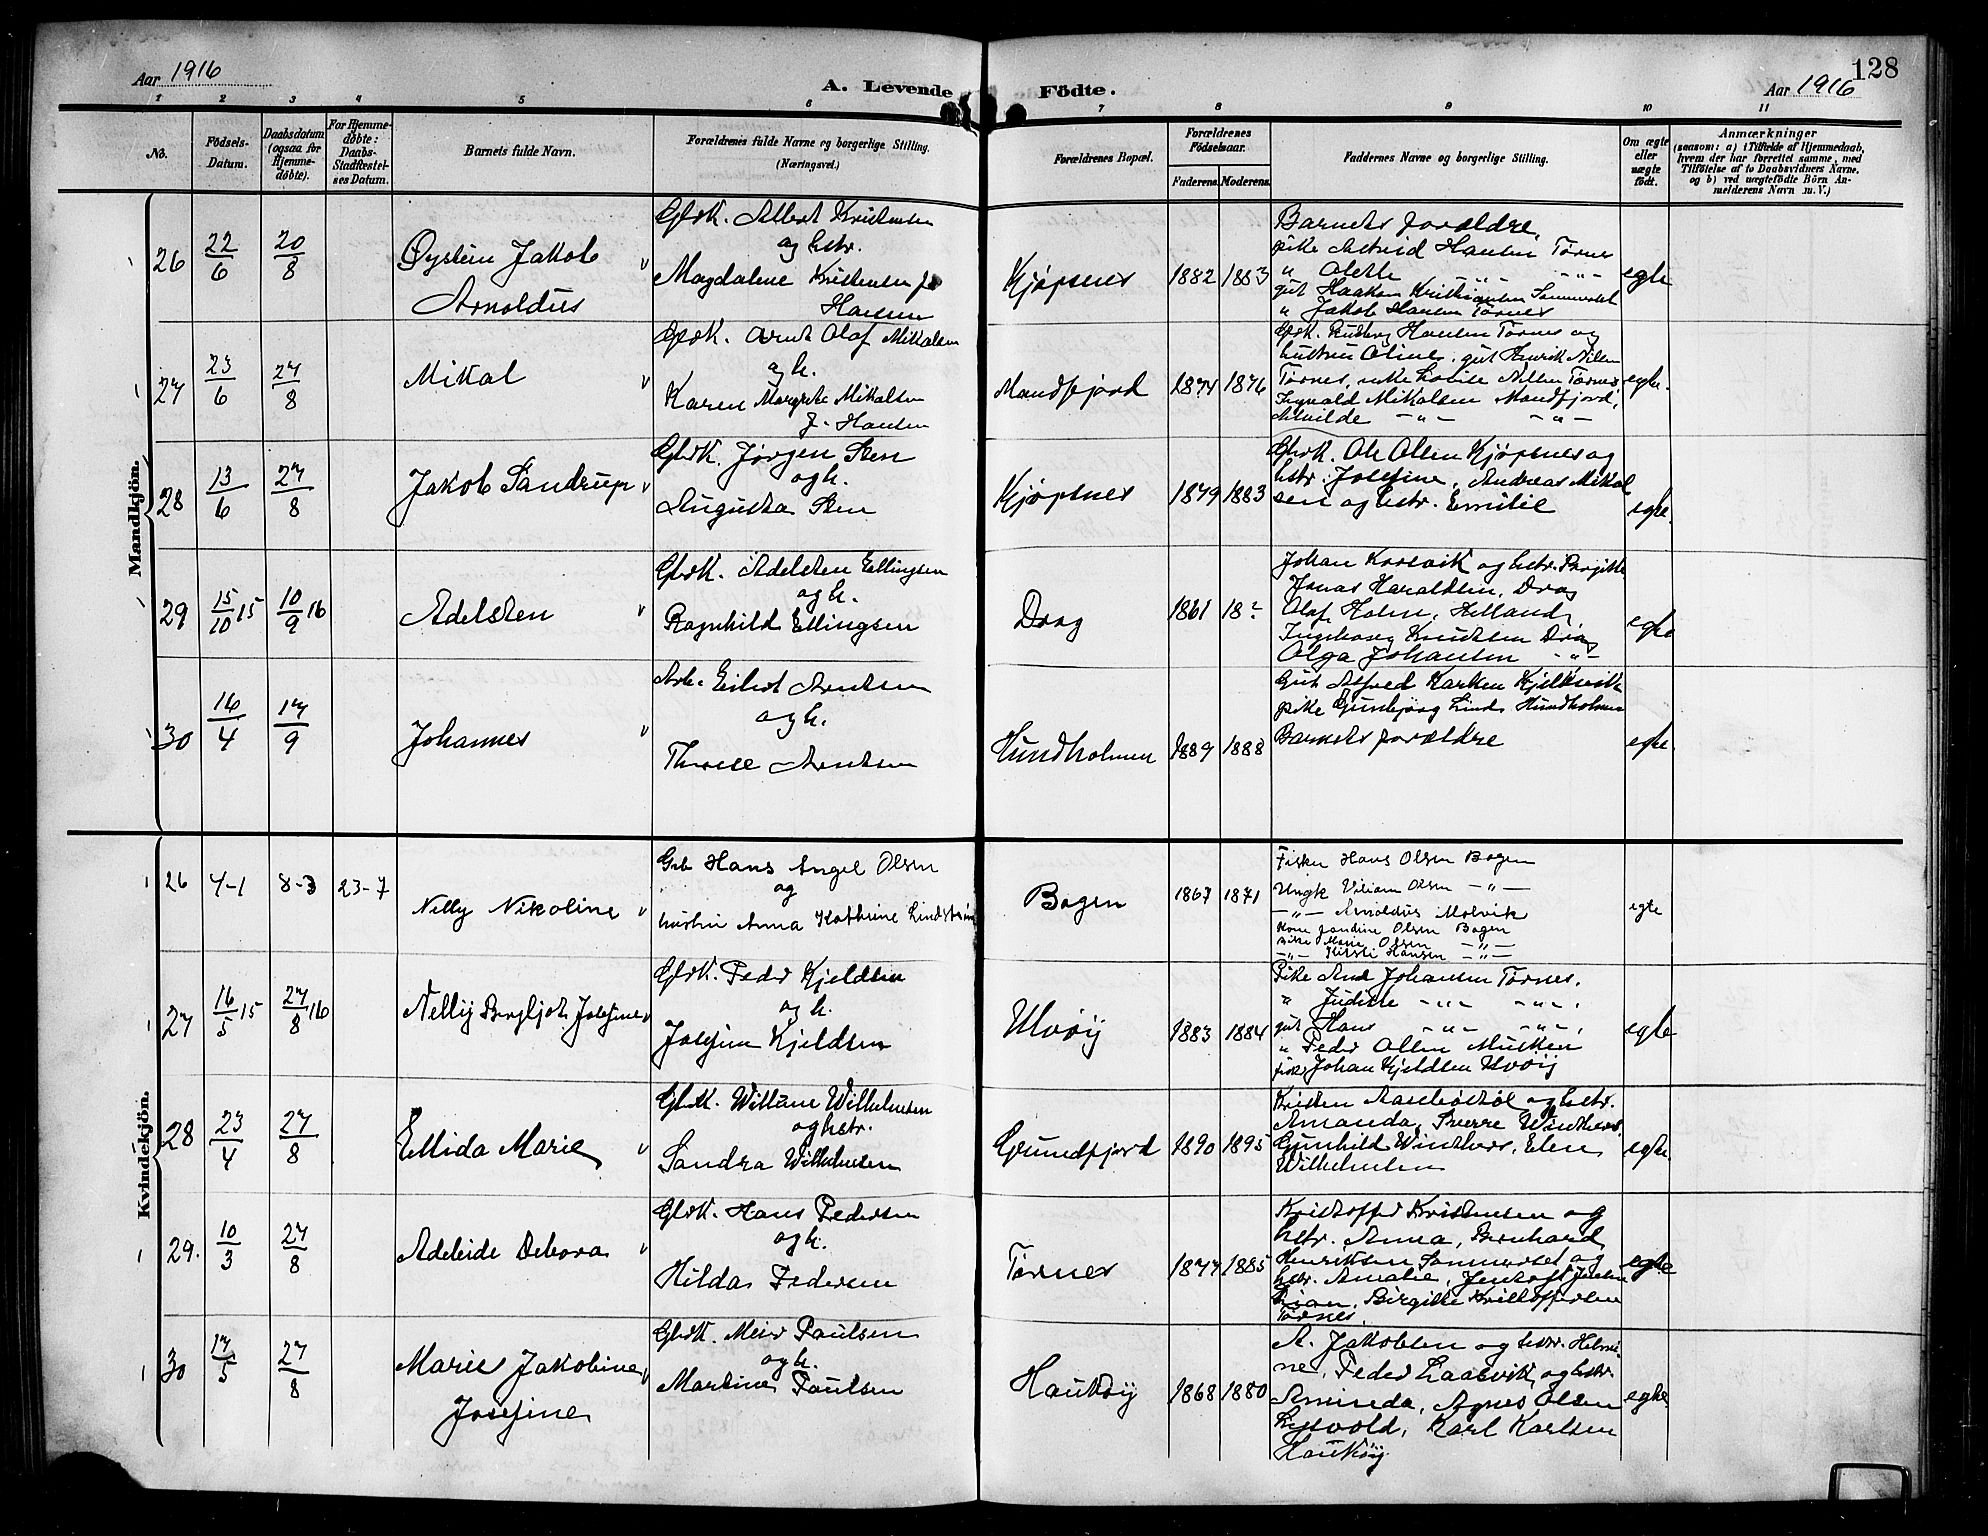 Aar 1916
A. Levende Födte.
Aar 1916
128
1 2 3 4 5 6 7 8 9 10 11
No.
Födsels-Datum.
Daabsdatum (ogsaa for Hjemme-döbte).
For Hjemme-döbte: Daabs-Stadfæstel-ses Datum.
Barnets fulde Navn.
Forældrenes fulde Navne og borgerlige Stilling.
(Næringsvei.)
Forældrenes Bopæl.
Forældrenes Födselsaar.
Faderens. Moderens.
Faddernes Navne og borgerlige Stilling.
Om ægte eller uægte födt.
Anmærkninger
(saasom: a) i Tilfælde af Hjemmedaab,
hvem der har forrettet samme, med
Tilföielse af to Daabsvidners Navne,
og b) ved uægtefödte Börn An-
melderens Navn m. V.)
Mandkjön.
26 22/6 20/8
Øystein Jakob
Arnoldus
Gbk. Albert Kristensen
og hstr.
Magdalene Kristensen f.
Hansen
Kjøpsnes 1882 1883
Barnets forældre,
pike Astrid Hansen Tørnes
" Olette " "
gut Haakon Kristiansen Sommerset
" Jakob Hansen Tørnes
egte
27 23/6 27/8
Mikal
Gbk. Arnt Olaf Mikalsen
og h.
Karen Margrete Mikalsen
f. Hansen
Mandfjord 1874 1876
Gbk. Hansen Tørnes og
hustru Oline, gut Henrik Nilsen
Tørnes, pike Lovise Nilsen Tørnes,
Ingvald Mikalsen Mandfjord,
Alvilde - " - - " -
egte.
28 13/6 27/8
Jakob Sandrup
Gbk. Jørgen Sten
og h.
Augusta Sten
Kjøpsnes 1879 1883
Gbrk. Ole Olsen Kjøpsnes og
hstr. Josefine, Andreas Mikal
sen og hstr. Emilie
egte.
29 15/10 15 10/9 16
Adelsten
Gbk. Adelsten Ellingsen
og h.
Ragnhild Ellingsen
Drag 1861 18?
Johan Korsvik og hstr. Birgitte
Jonas Haraldsen, Drag
Olaf Holm, Helland,
Ingeborg Knudsen Drag
Olga Johansen - " -
egte
30 16/4 17/9
Johannes
Arb. Eilert Arntsen
og h.
Therese Arntsen
Hundholmen 1889 1888
Gut Alfred Karlsen Kjelkesvik
pike Gunbjørg Lind Hundholmen
Barnets forældre
egte.
Kvindekjön.
26 4-1 8-3 23-7
Nelly Nikoline
Grb Hans Angel Olsen
og
hustru Anna Kathrine Lindstrøm
Bogen 1867 1871
Fisker Hans Olsen Bogen
Ungk Viliam Olsen - " -
- " - Arnoldus Molvik
Kone Jandine Olsen Bogen
Pike Marie Olsen - " -
- " - Kirsti Hansen - " -
egte
27 16/5 15 27/8 16
Nelly Bergljot Josefine
Gbk. Peder Kjeldsen
og h.
Josefine Kjeldsen
Ulvøy 1883 1884
Pike Ane Johansen Tørnes.
" Judithe - " - - " -
gut Hans - " - - " -
" Peder Olsen Musken
fisk. Johan Kjeldsen Ulvøy
egte
28 23/4 27/8
Ellida Marie
Gbk. William Wilhelmsen
og hstr.
Sandra Wilhelmsen
Grundfjord 1890 1895
Kristen Aasebøstøl og hstr.
Amanda, Sverre Winthers,
Gunhild Winthers, Elen
Wilhelmsen
egte.
29. 10/3 27/8
Adeleide Debora
Gbk. Hans Pedersen
og h.
Hilda Pedersen
Tørnes 1877 1885
Kristoffer Kristensen og
hstr. Anna, Bernhard
Henriksen Sommerset og
hstr. Amalie, Jentoft Jensen
Birgitte Kristoffersen
Tørnes.
egte
30 17/5 27/8
Marie Jakobine
Josefine
Gbk. Meier Paulsen
og h.
Martine Paulsen
Haukøy 1868 1880
A. Jakobsen og hstr. Helmi-
ne, Peder Laasvik og hstr.
Aminda, Agnes Olsen
Lysvold, Karl Karlsen
Haukøy
egte